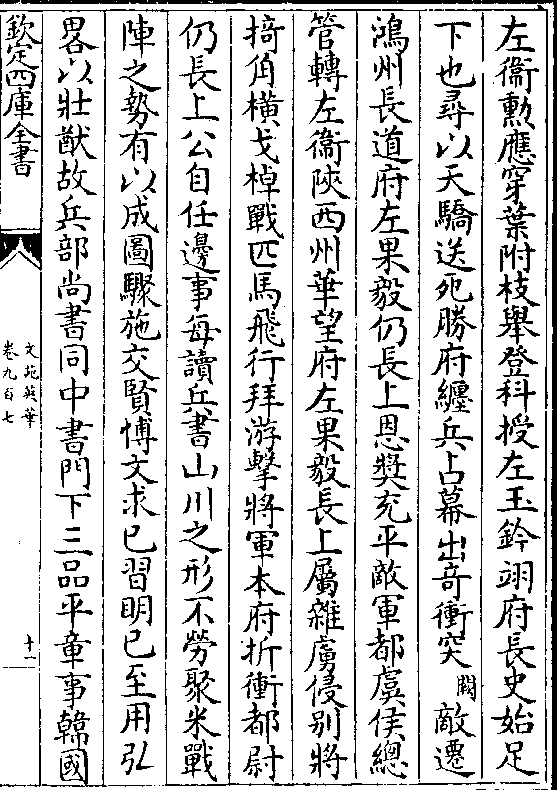 左衞勲應穿葉附枝舉登科授左玉鈐翊府長史始足
下也尋以天驕送死勝府纏兵占募出竒衝突闕敵遷
鴻州長道府左果毅仍長上恩奬充平敵軍都虞候總
管轉左衞陜西州華望府左果毅長上屬雜虜侵别將
掎角横戈棹戰匹馬飛行拜游擊將軍本府折衝都尉
仍長上公自任邊事每讀兵書山川之形不勞聚米戰
陣之勢有以成圖驟施交賢博文求已習明已至用弘
畧以壯猷故兵部尚書同中書門下三品平章事韓國
欽定四庫全書
文苑英華
卷九百七
十一